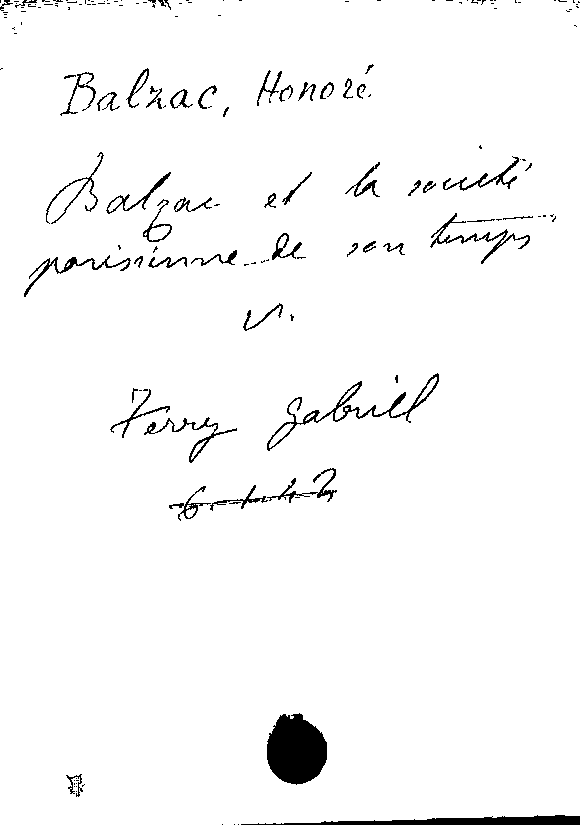 Balzac, Honoré
Balzac et la société
parisienne de son temps
v.
Ferry Gabriel
6.1.42